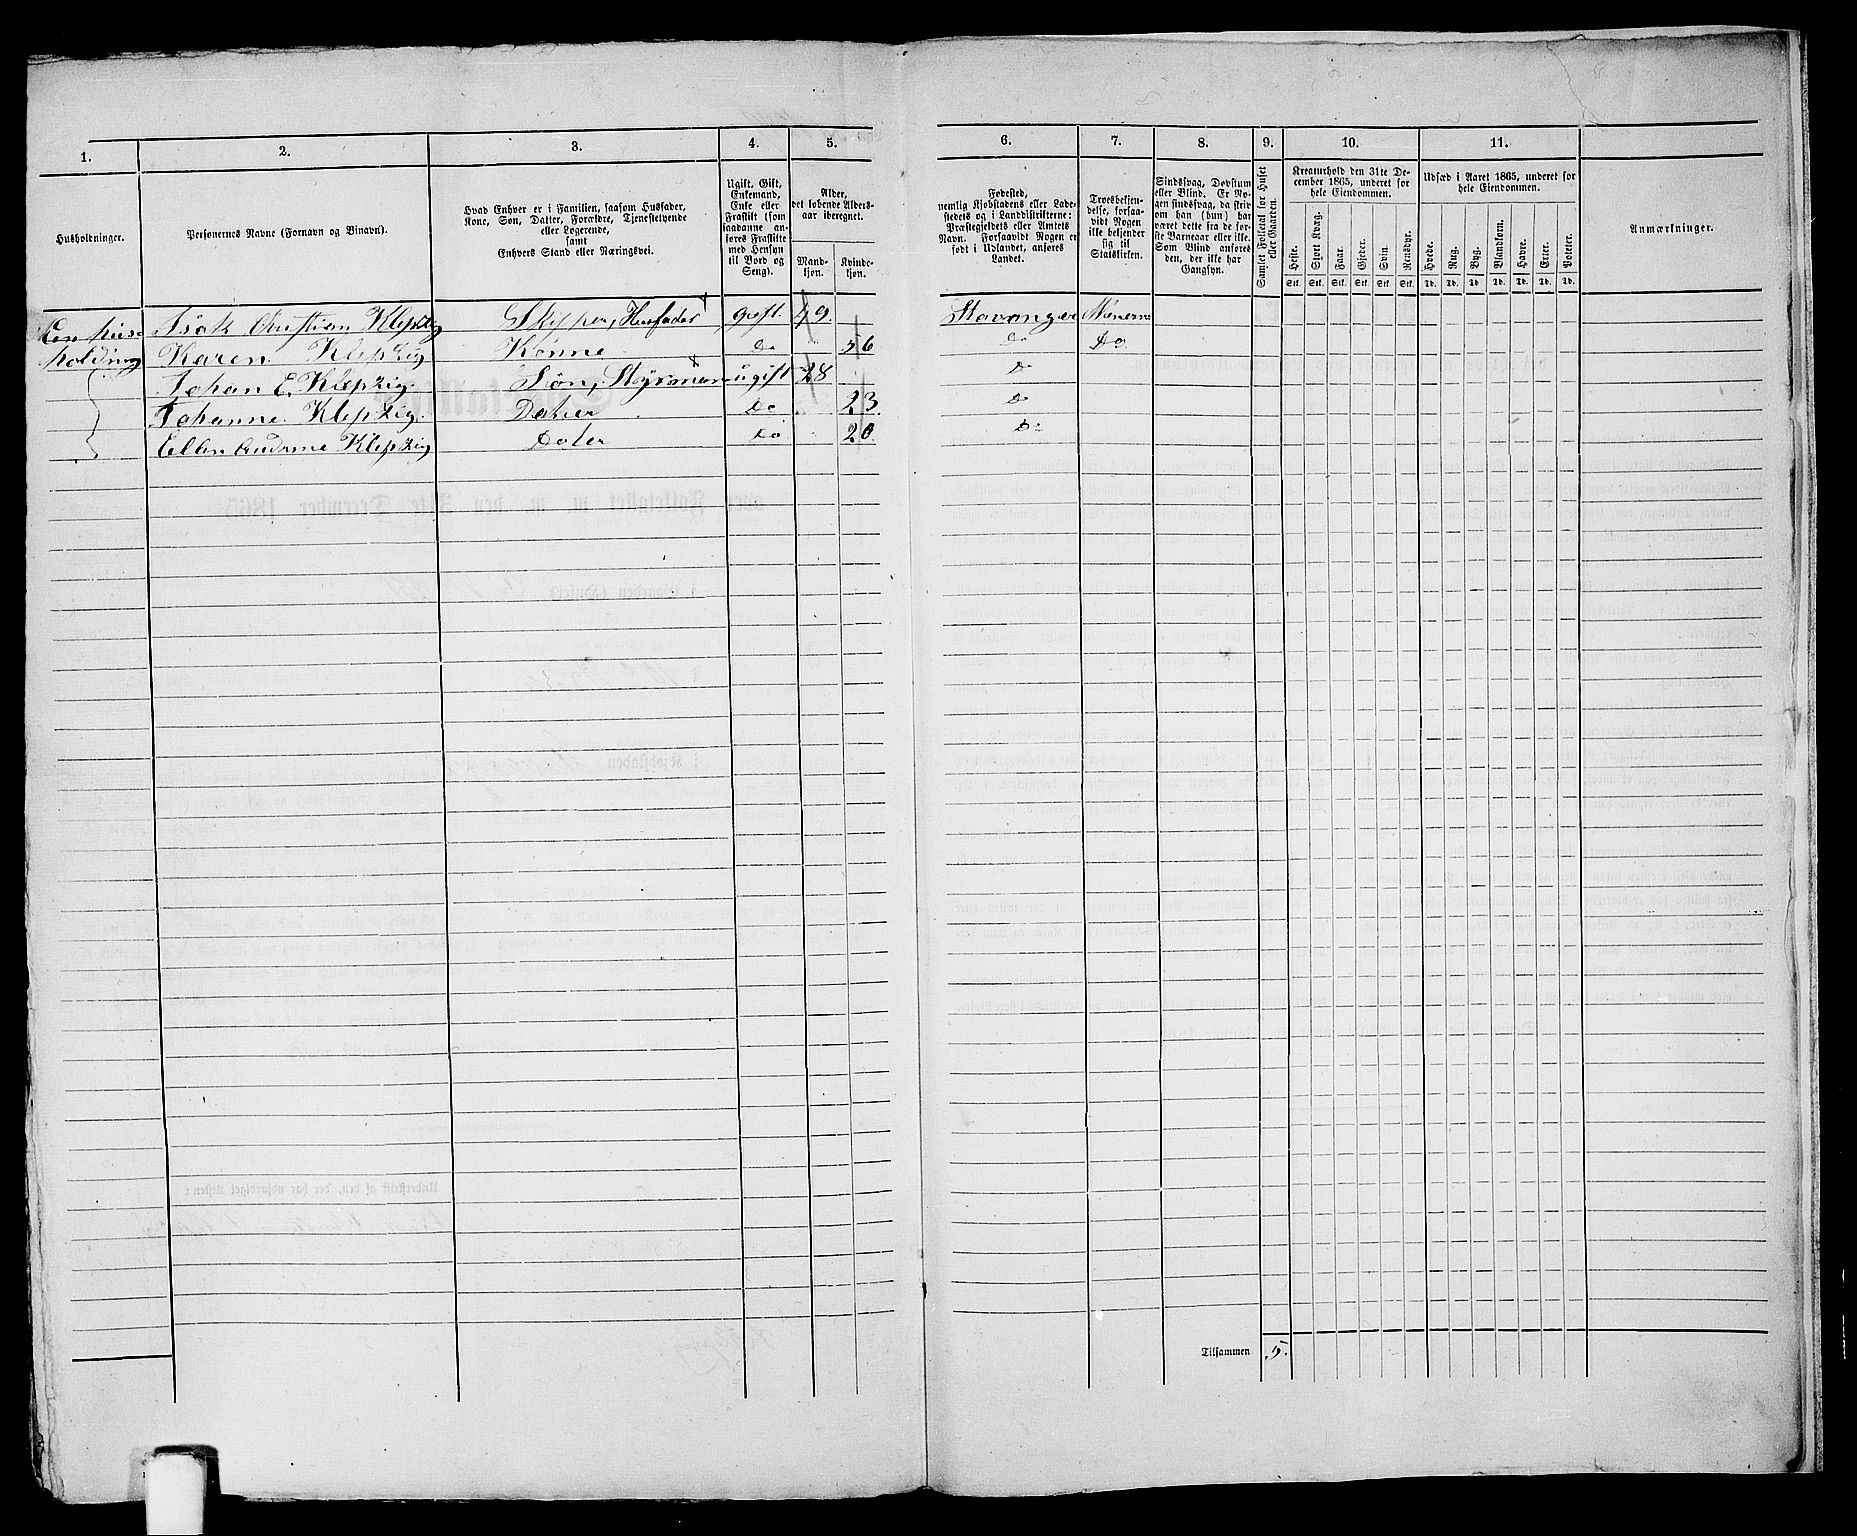 1. 2. 3. 4. 5. 6. 7. 8. 9. 10. 11.
Husholdninger.
Personernes Navne (Fornavn og Binavn).
Hvad Enhver er i Familien, saasom Husfader,
Kone, Søn, Datter, Forældre, Tjenestetyende
eller Logerende,
samt
Enhvers Stand eller Næringsvei.
Ugift, Gift,
Enkemand,
Enke eller
Fraskilt (som
saadanne an-
føres Fraskilte
med Hensyn
til Bord og
Seng).
Alder,
det løbende Alders-
aar iberegnet.
Mand-
kjøn.
Kvinde-
kjøn.
Fødested,
nemlig Kjøbstadens eller Lade-
stedets og i Landdistrikterne:
Præstegjeldets eller Amtets
Navn. Forsaavidt Nogen er
født i Udlandet, anføres
Landet.
Troesbekjen-
delse, forsaa-
vidt Nogen
ikke bekjender
sig til
Statskirken.
Sindssvag, Døvstum
eller Blind. Er No-
gen sindssvag, da skriv
om han (hun) har
været dette fra de før-
ste Barneaar eller ikke.
Som Blind anføres
den, der ikke har
Gangsyn.
Samlet Folketal for Huset
eller Gaarden.
Kreaturhold den 31te De-
cember 1865, underet for
hele Eiendommen.
Heste. Stort Kvæg. Faar. Gjeder. Svin. Rensdyr.
Stk. Stk. Stk. Stk. Stk. Stk.
Udsæd i Aaret 1865, underet for
hele Eiendommen.
Hvede. Rug. Byg. Blandkorn. Havre. Erter. Poteter.
Td. Td. Td. Td. Td. Td. Td.
Anmærkninger.
Een huse Isak Christian Klepzig Skipper, Husfader gift. 49. Stavanger
holding Karen Klepzig Konne do 56 do do
Johan E. Klepzig. Søn, Styrsman ugift 28 Do
Johanne Klepzig. Dater Do 23 Do
Ellen Klepzig Dater Do 20 Do
Tilsammen 5.